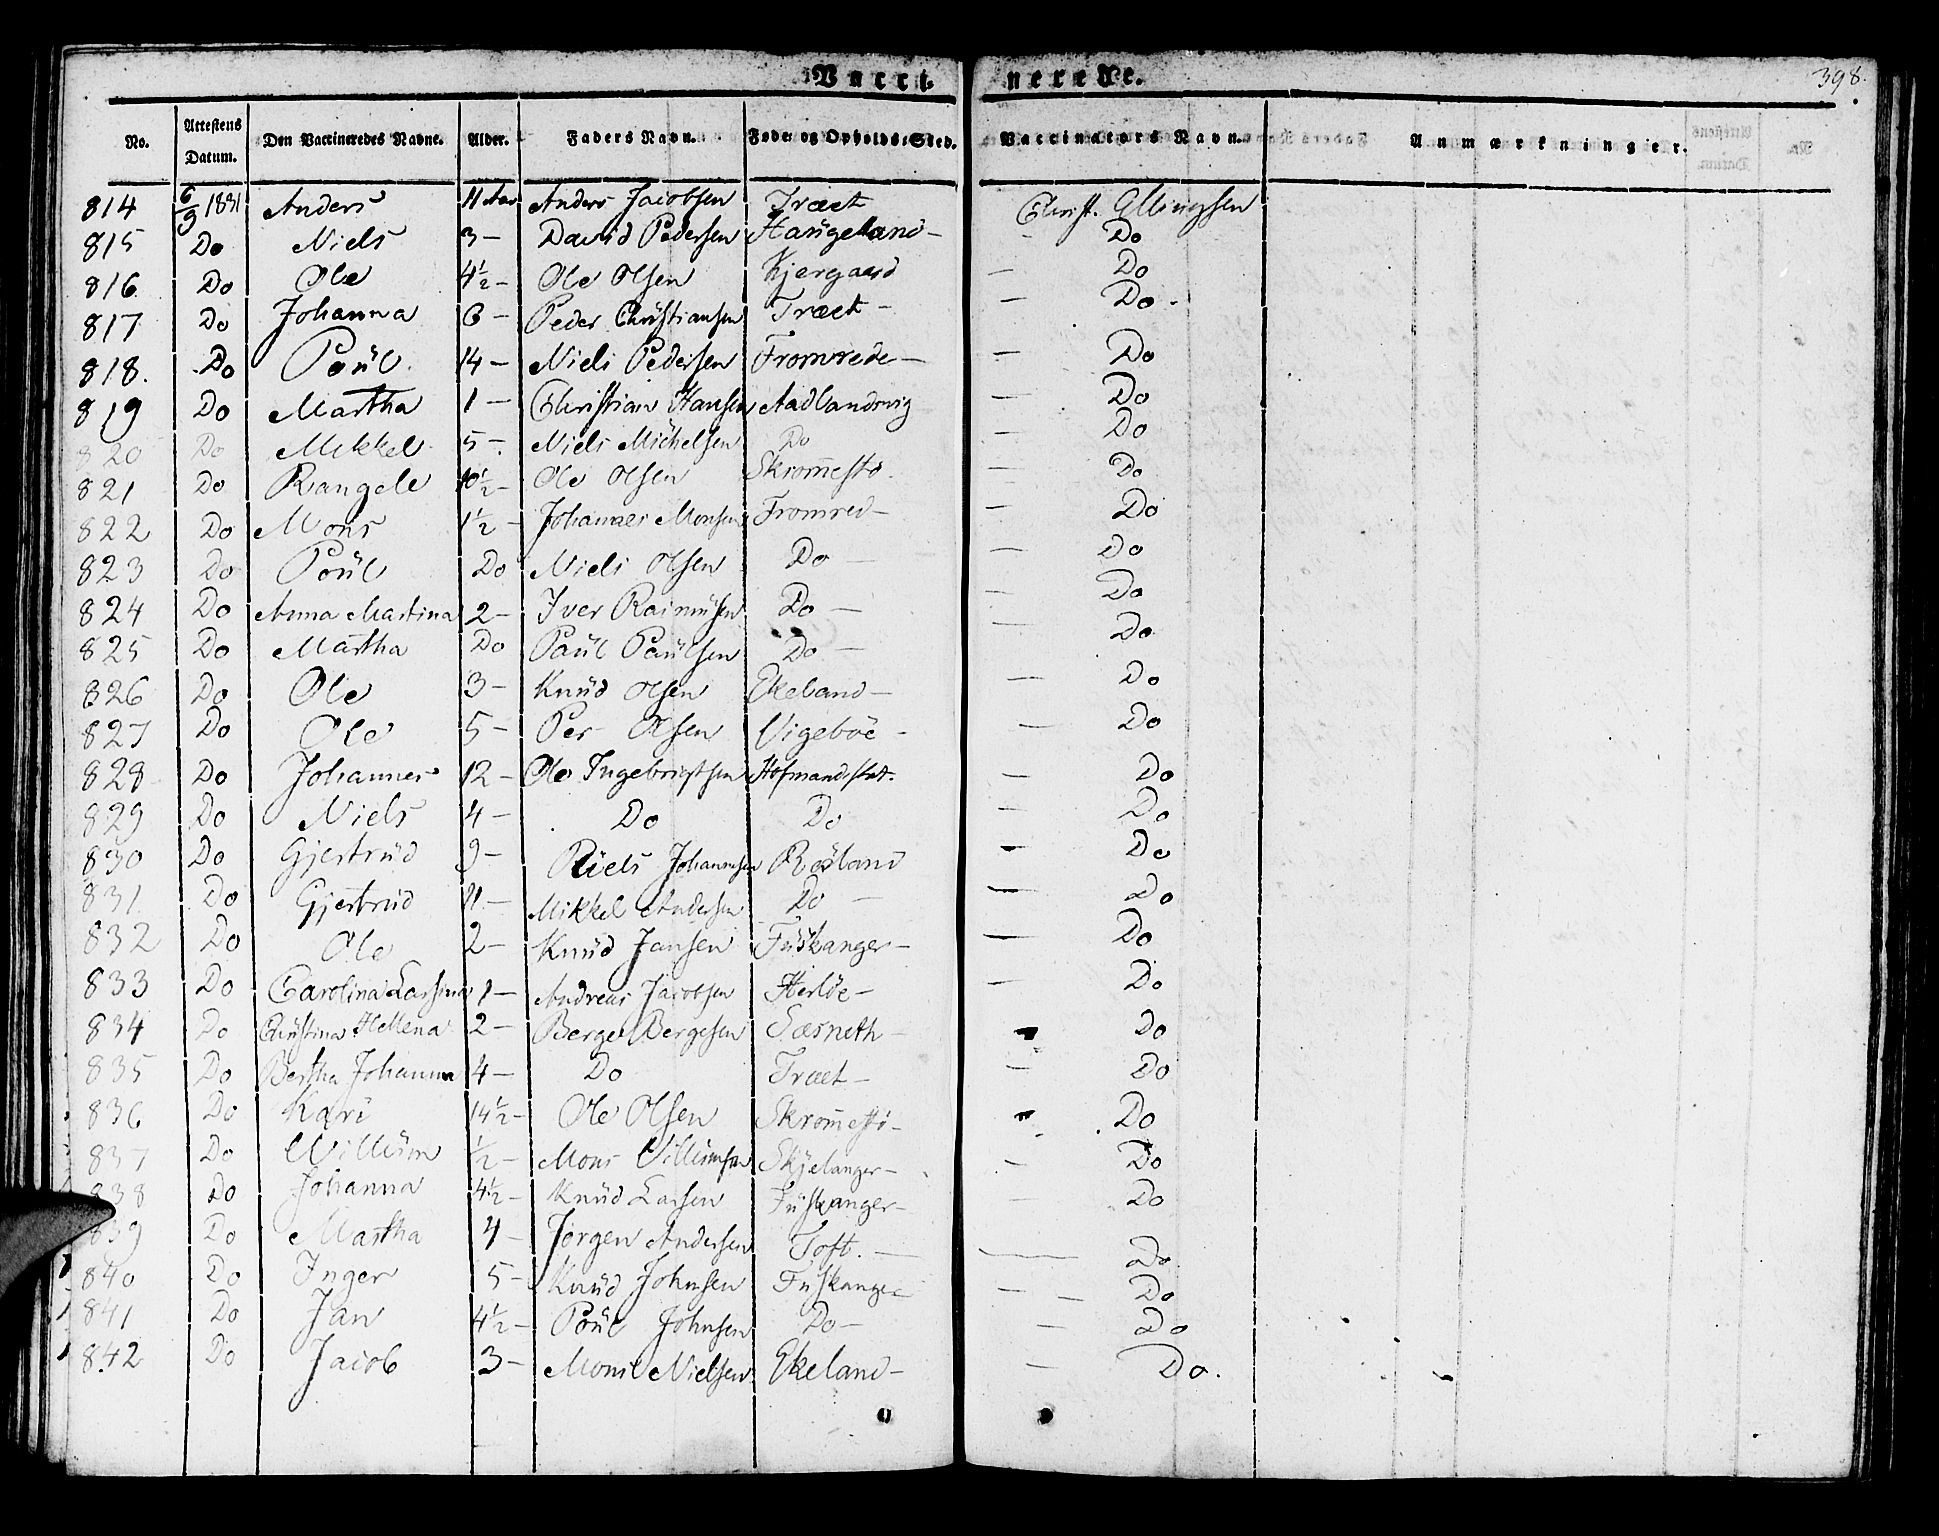 Vacci- nerede.
398.
No. Attestens Datum. Den Vaccineredes Navne. Alder. Faders Navn. Føde- og Opholds-Sted. Vaccinators Navn. Anmærkninger.
814 6/9 1831 Anders 11 Aar Anders Jacobsen Træet Christ. Ellingsen
815 Do Niels 3 – David Pedersen Haugeland – Do
816 Do Ole 4½ – Ole Olsen Kjergaard – Do
817 Do Johanna 6 – Peder Christiansen Træet – – Do –
818. Do Poül. 14 – Niels Pedersen Fromrede – – Do
819 Do Martha 1 – Christian Hansen Aadlandsvig – Do
820 Do Mikkel 5 –. Niels Michelsen Do – Do
821 Do Rangele 10½ – Ole Olsen Skrom̅estø. – Do
822 Do Mons 1½ – Johannes Monsen Fromred – – Do
823 Do Poül Do Niels Olsen Do – – Do
824 Do Anna Martina 2 – Iver Rasmüsen Do – – Do
825 Do Martha Do Paül Paülsen Do – – Do
826 Do Ole 3 – Knüd Olsen Ekeland – – Do
827 Do Ole 5 – Per Olsen Vigeböe – – Do
828 Do Johannes 12 – Ole Ingebrigtsen Hofmandsflat. – Do
829 Do Niels 4 – Do Do – Do
830 Do Gjertrüd 9 – Niels Johannesen Rosland – Do
831. Do Gjertrüd 11. – Mikkel Andersen Do – – Do
832 Do Ole 2 – Knüd Jansen Füskanger – – Do
833 Do Carolina Larsina 1 – Andreas Jacobsen Herlöe – – Do
834 Do Christina Hellena 2 – Berge Bergesen Sæsneth – – Do
835 Do Bertha Johanna 4 – Do Træet – – Do
836 Do Kari 14½ – Ole Olsen Skrom̅estø – – Do
837 Do Willüm ½ – Mons Villümsen Skjelanger – – Do
838 Do Johanna 4½ – Knüd Larsen Füskanger – – Do
839 Do Martha 4 – Jørgen Andersen Toft. – – Do
840 Do Inger 5 – Knüd Johnsen Füskange – – Do
841 Do Jan 4½ – Poül Johnsen Do – – Do
842 Do Jacob 3 – Mons Nielsen Ekeland – – Do.